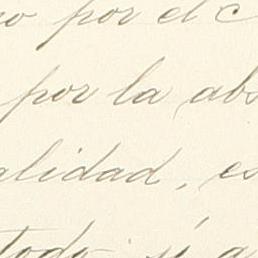 no por el c
por la abs
alidad, es
todo sí a